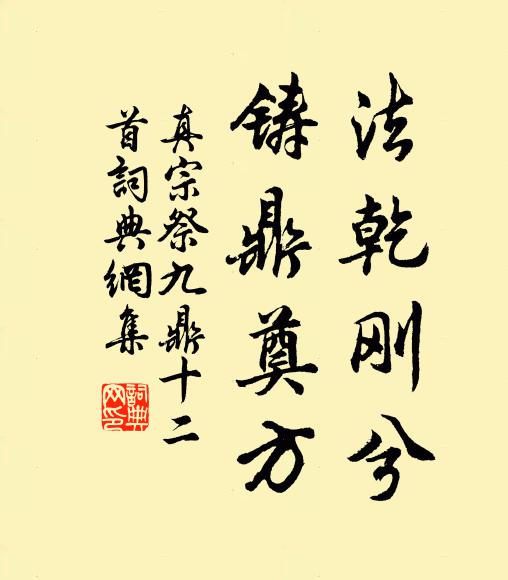 法乾刚兮
铸鼎奠方
真宗祭九鼎十二
首詞典網集
詞典
网印